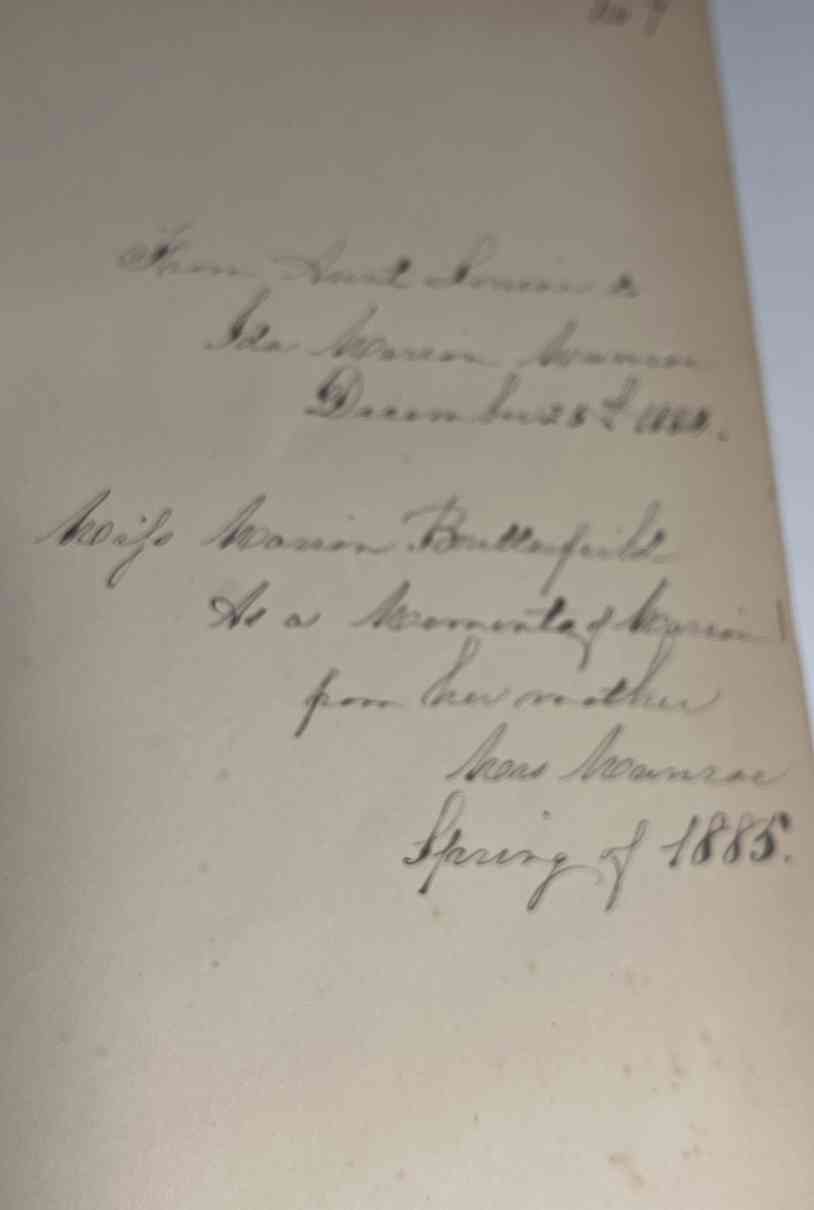 No 7
From Aunt Louisa to
Ida Marion Munroe
December 25th
Miss Marion Butterfield
As a Memento of Marion
from her mother
Mrs Munroe
Spring of 1885.